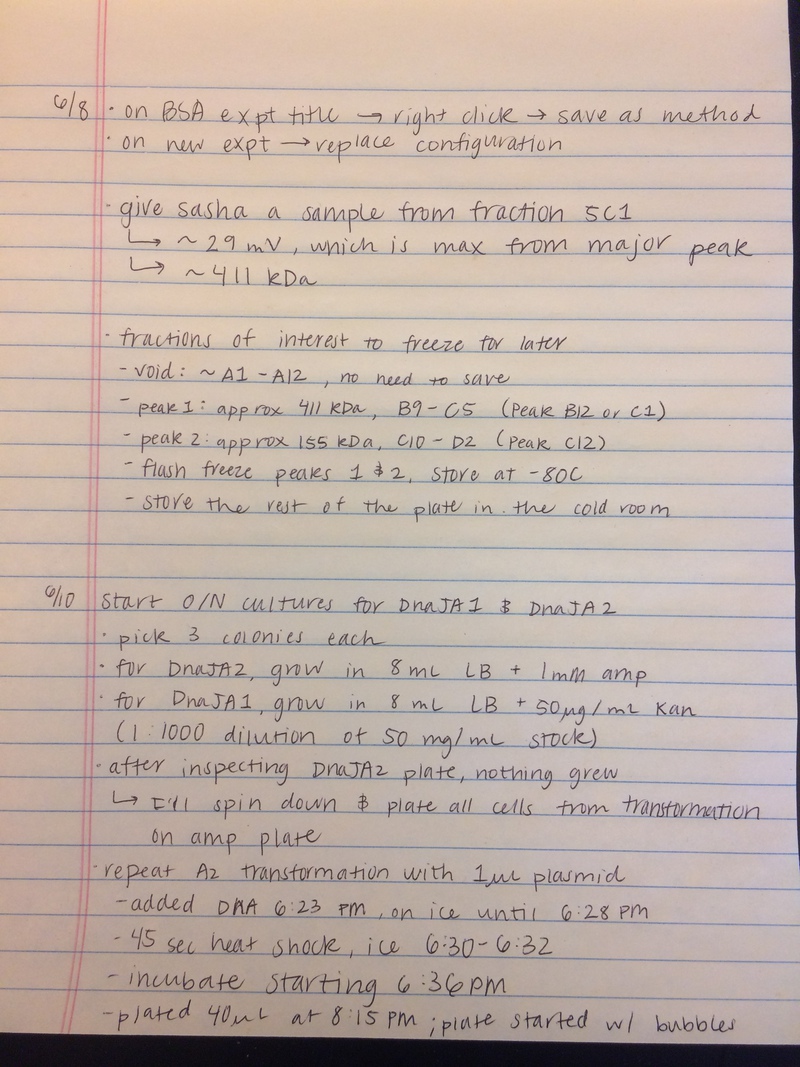 6/8 · on BSA expt title → right click → save as method
· on new expt → replace configuration
· give sasha a sample from fraction 5C1
↳ ~29 mV, which is max from major peak
↳ ~411 kDa
· fractions of interest to freeze for later
- void: ~A1-A12, no need to save
- peak 1: approx 411 kDa, B9-C5 (Peak B12 or C1)
- peak 2: approx 155 kDa, C10-D2 (Peak C12)
- flash freeze peaks 1 & 2, store at -80C
- store the rest of the plate in the cold room
6/10 start O/N cultures for DnaJA1 & DnaJA2
· pick 3 colonies each
· for DnaJA2, grow in 8 mL LB + 1mM amp
· for DnaJA1, grow in 8 mL LB + 50µg/mL Kan
(1:1000 dilution of 50 mg/mL stock)
· after inspecting DnaJA2 plate, nothing grew
↳ I'll spin down & plate all cells from transformation
on amp plate
· repeat A2 transformation with 1µL plasmid
- added DNA 6:23 PM, on ice until 6:28 PM
- 45 sec heat shock, ice 6:30-6:32
- incubate starting 6:36 PM
- plated 40µL at 8:15 PM; plate started w/ bubbles